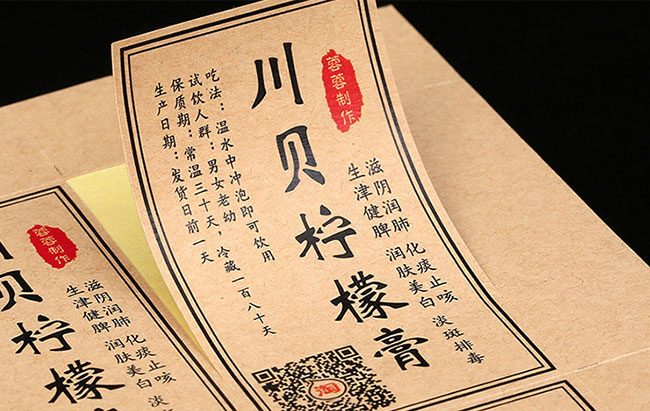 蓉蓉制作
滋阴润肺 化痰止咳
生津健脾 润肤美白 淡斑排毒
川贝柠檬膏
吃法：温水中冲泡即可饮用
试饮人群：男女老幼
保质期：常温三十天、冷藏一百八十天
生产日期：发货日前一天
淘
蓉蓉制作
滋阴润肺 化痰止咳
生津健脾 润肤美白 淡
川贝柠檬